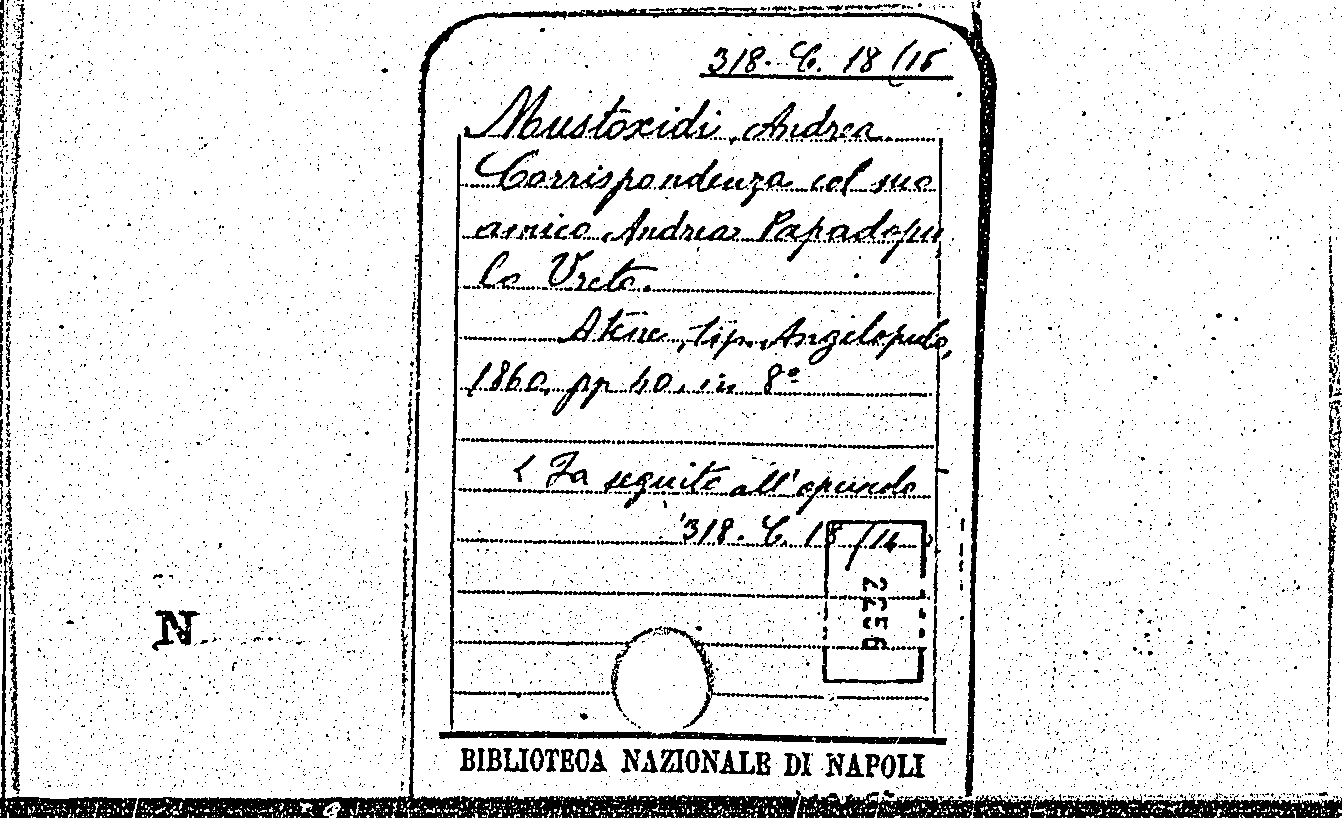 318. C. 18 (15
Mustoxidi, Andrea.
Corrispondenza col suo
amico Andrea Papadopu
lo Vreto.
Atene, tip. Angelopulo,
1860, pp 40. in 8º
< Fa seguito all'opuscolo
318. C. 18 /14
2256
N
BIBLIOTECA NAZIONALE DI NAPOLI